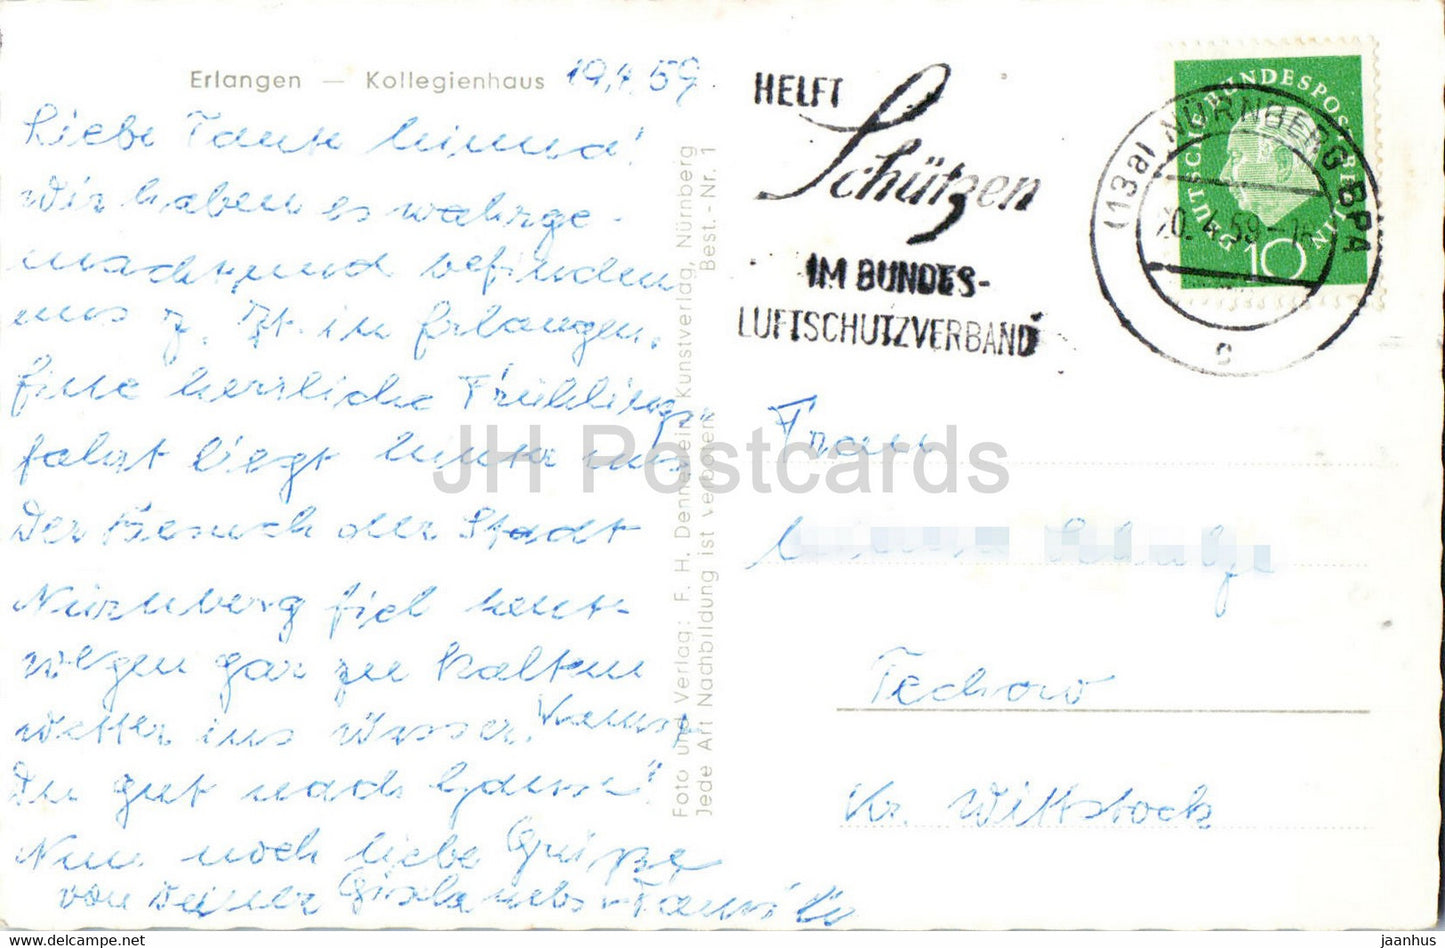 Erlangen — Kollegienhaus 19.4.59
Liebe Tante Minna!
Wir haben es wahrge-
macht und befinden
uns z. Zt. in Erlangen.
Eine herrliche Frühlings-
fahrt liegt hinter uns
Der Besuch der Stadt
Nürnberg fiel heut
wegen gar zu kaltem
Wetter ins Wasser. Kamst
Du gut nach Hause?
Nun noch liebe Grüße
von Deiner Gisela nebst Familie
Foto und Verlag: F. H. Dennerlein Kunstverlag, Nürnberg
Jede Art Nachbildung ist verboten Best.-Nr. 1
HELFT
Schützen
IM BUNDES-
LUFTSCHUTZVERBAND
(13a) NÜRNBERG BPA
20.4.59-16
c
DEUTSCHE BUNDESPOST BERLIN
10
Frau
Techow
Kr. Wittstock
JH Postcards
jaanhus